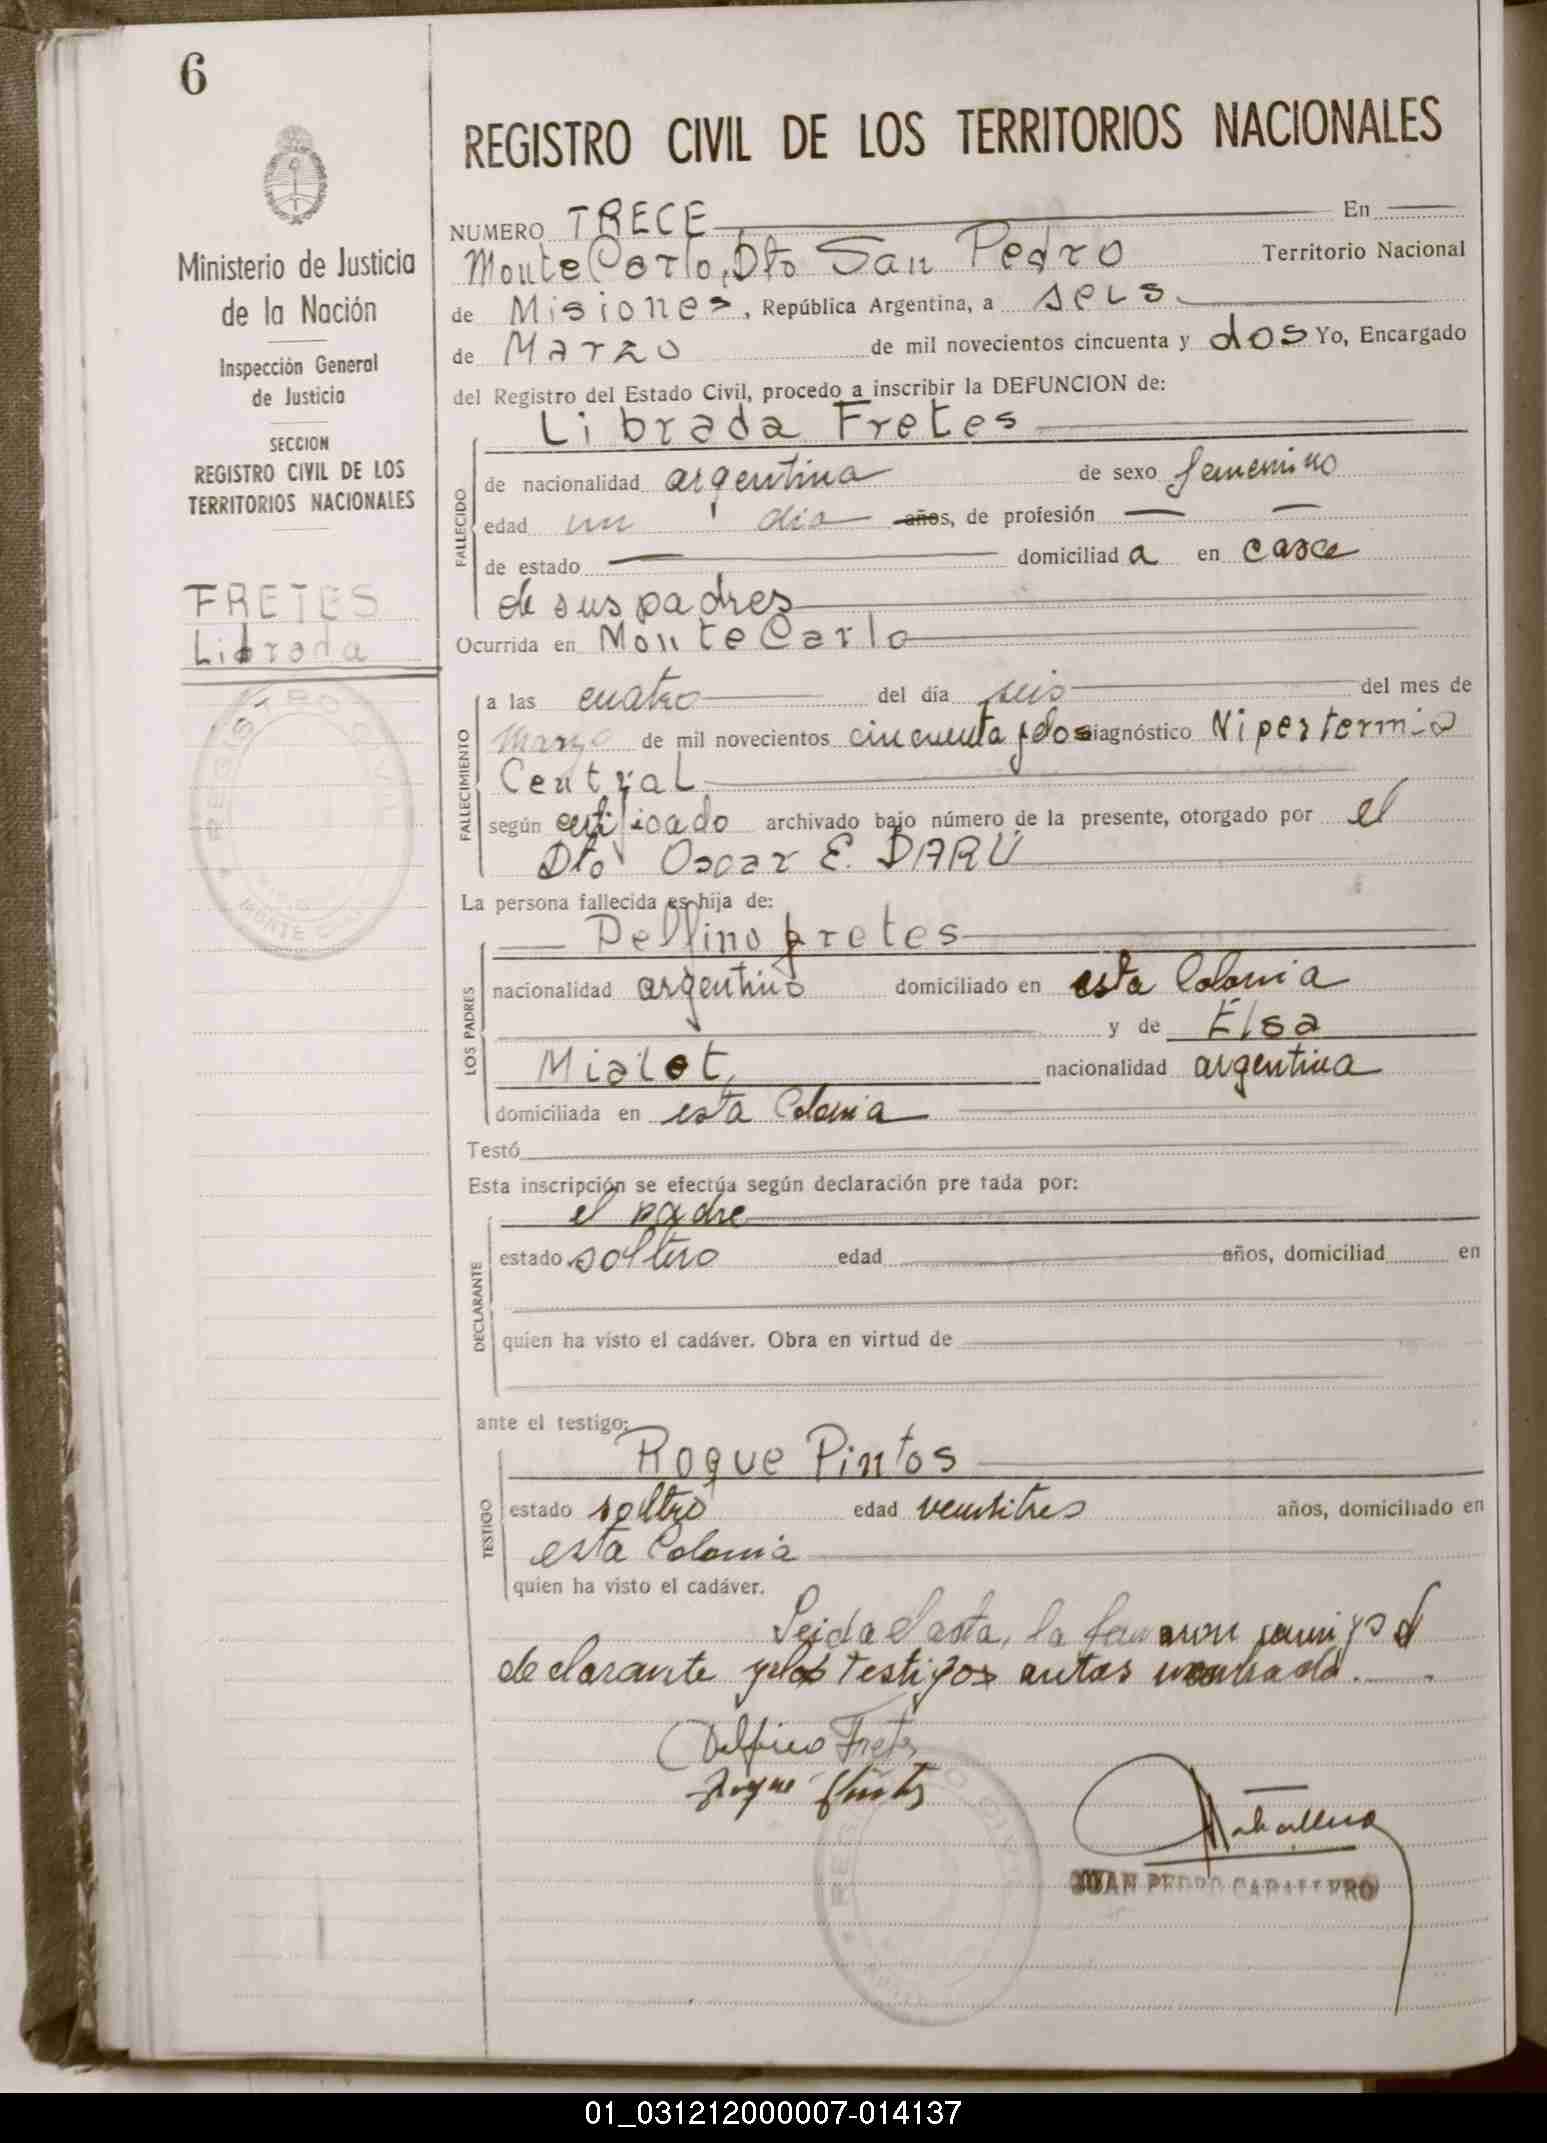 6
REGISTRO CIVIL DE LOS TERRITORIOS NACIONALES
Ministerio de Justicia
de la Nación
Inspección General
de Justicia
SECCION
REGISTRO CIVIL DE LOS
TERRITORIOS NACIONALES
FRETES
Librada
REGISTRO CIVIL
MONTE
NUMERO TRECE En
Monte Carlo, Dto San Pedro Territorio Nacional
de Misiones, República Argentina, a seis
de Marzo de mil novecientos cincuenta y dos Yo, Encargado
del Registro del Estado Civil, procedo a inscribir la DEFUNCION de:
Librada Fretes
FALLECIDO
de nacionalidad argentina de sexo femenino
edad un dia años, de profesión
de estado domiciliad a en casa
de sus padres
Ocurrida en Monte Carlo
FALLECIMIENTO
a las cuatro del día seis del mes de
Marzo de mil novecientos cincuenta y dos diagnóstico Nipertermia
Central
según certificado archivado bajo número de la presente, otorgado por el
Dto Oscar E. DARÚ
La persona fallecida es hija de:
LOS PADRES
Delfino fretes
nacionalidad argentino domiciliado en esta Colonia
y de Elsa
Mialot, nacionalidad argentina
domiciliada en esta Colonia
Testó
Esta inscripción se efectúa según declaración pre tada por:
DECLARANTE
el padre
estado soltero edad años, domiciliad en
quien ha visto el cadáver. Obra en virtud de
ante el testigo:
TESTIGO
Roque Pintos
estado soltro edad veintitres años, domiciliado en
esta Colonia
quien ha visto el cadáver.
Leida el acta, la firmaron conmigo el
declarante y los testigos antes
Delfino Fretes
Roque Pintos
Caballero
JUAN PEDRO CABALLERO
01_031212000007-014137